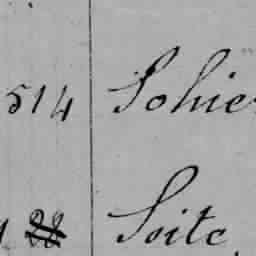 514 Sohier
Soite